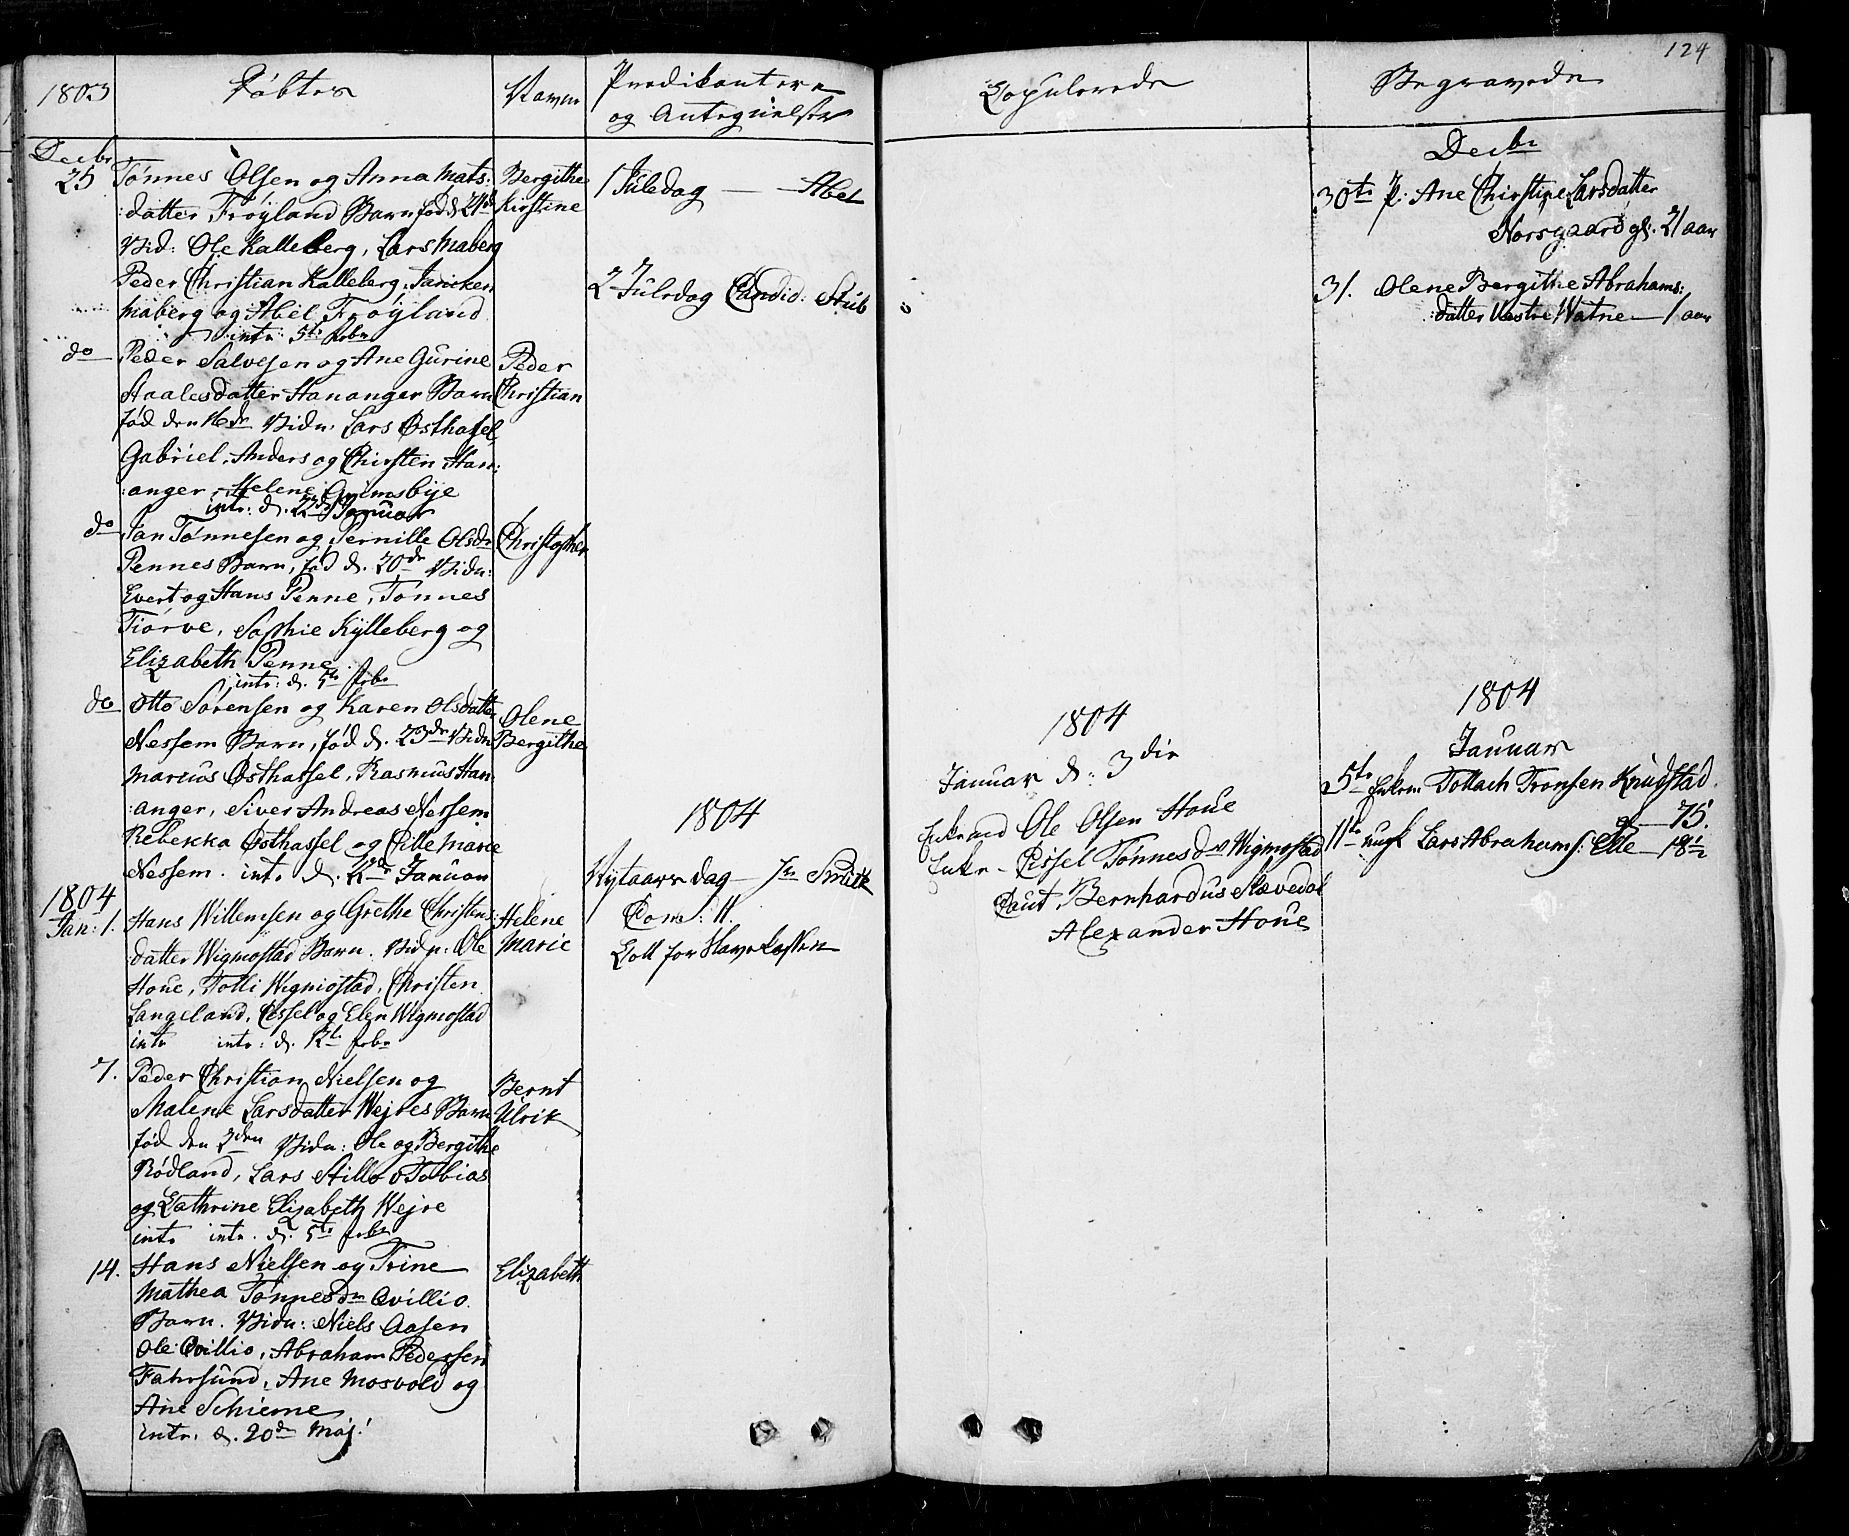 124
1803 Døbte Navne Predikantere
og Antegnelser
Copulerede Begravede
Decbr
25 Tønnes Olsen og Anna Mats:
:datter Frøyland Barn fød d. 21de
Vid: Ole Kalleberg, Lars Maberg
Peder Christian Kalleberg, Jaricken
Maberg og Abel Frøyland
intr: 5te Febr
Bergithe
Kirstine
do Peder Salvesen og Ane Gurine
Aalesdatter Hananger Barn
fød den 16de Vidn: Lars Østhasel,
Gabriel, Anders og Chirsten Han:
:anger, Helene Grimsbye
intr: d. 22de Januar
Peder
Christian
do Jan Tønnesen og Pernille Olsdr
Pennes Barn, fød d. 20de Vidn:
Evert og Hans Penne, Tønnes
Tiørve, Sophie Kylleberg og
Elizabeth Penne
intr: d. 5te Febr
Christopher
do Otto Sørensen og Karen Olsdatter
Nessem Barn, fød d. 23de Vidn
Marcus Østhassel, Rasmus Han
:anger, Siver Andreas Nessem
Rebekka Østhassel og Cille Marie
Nessem. intr d. 22de Januar
Olene
Bergithe
1804
Jan: 1. Hans Willemsen og Grethe Christens:
datter Wigmostad Barn. Vidn: Ole
Houe, Tolli Wigmostad, Christen
Langeland, Cissel og Elen Wigmostad
intr intr: d. 12te Febr
Helene
Marie
7. Peder Christian Nielsen og
Malene Larsdatter Wejres Barn
fød den 2den Vidn: Ole og Bergithe
Rødland, Lars Stillo Tobias
og Cathrine Elizabeth Wejre
intr intr. d. 5te Febr
Bernt
Ulrik
14. Hans Nielsen og Trine
Mathea Tønnesdr Qvillio
Barn. Vidn: Niels Aasen
Ole Qvillio, Abraham Pedersen
Fahrsund, Ane Mosvold og
Ane Schieme
intr. d. 20de Maj!
Elizabeth
1 Juledag — Abel
2 Juledag Candid: Stub
1804
Nytaars dag — Hr Smith
Com: 11.
Coll for
1804
Januar d: 3die
Ole Olsen Houe
Enkn - Cissel Tønnesdr Wigmostad
Caut. Bernhardus Slævedal
Alexander Houe
Decbr
30te P: Ane Chirstine Larsdatter
Norsgaard gl. 21 aar
31. Olene Bergithe Abrahams:
:datter Vestre Watne — 1 aar
1804
Januar
5te Enkem Tollach Tronsen Knudstad
gl — 75.
11te ungk Lars Abrahams: Elle — 18 1/2